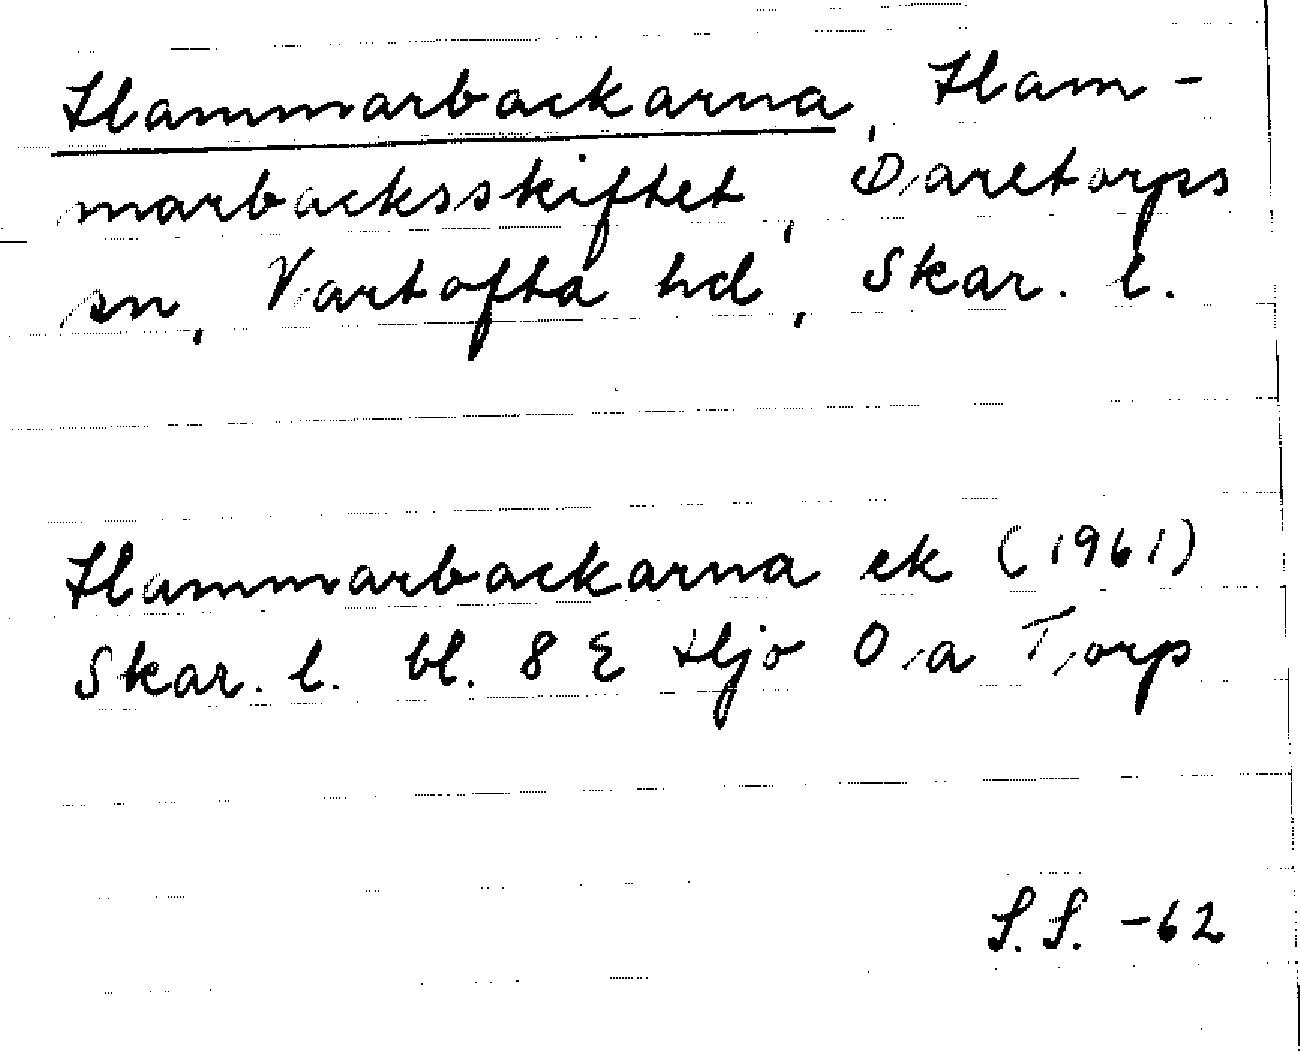 Hammarbackarna, Ham-
marbacksskiftet, Daretorps
sn, Vartofta hd, Skar. l.
Hammarbackarna ek (1961)
Skar. l. bl. 8 E Hjo 0 a Torp
S.S. -62